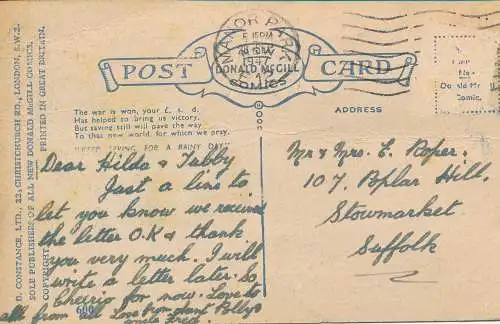 MANOR PARK
5 15 PM
1947
POST CARD
DONALD McGILL
COMICS
The war is won, your £. s. d.
Has helped to bring us victory.
But saving still will pave the way
To that new world, for which we pray.
"KEEP SAVING FOR A RAINY DAY"
ADDRESS
Donald Mc
Comic.
D. CONSTANCE, LTD., 22, CHRISTCHURCH RD., LONDON, S.W.2.
SOLE PUBLISHERS OF ALL NEW DONALD McGILL COMICS.
COPYRIGHT
PRINTED IN GREAT BRITAIN.
Dear Hilda & Tubby
Just a line to
let you know we received
the letter O.K & thank
you very much. I will
write a letter later. So
cheerio for now. Love to
all from all Love from Aunt Polly &
Uncle Fred.
600
Mr & Mrs. E. Roper.
107, Poplar Hill,
Stowmarket.
Suffolk